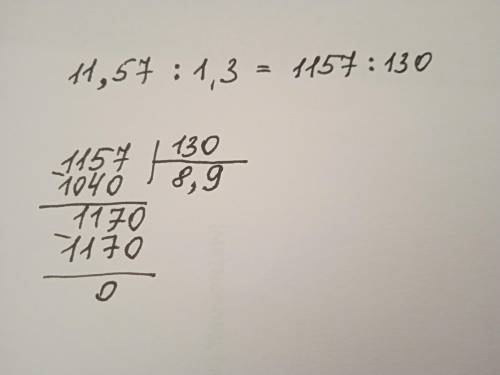 11,57 : 1,3 = 1157 : 130
1157 | 130
- 1040 | 8,9
1170
- 1170
0